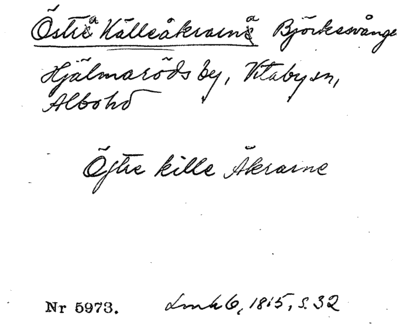 Östra Källeåkrarna Björkesvånge
Hjälmaröds by, Vitaby sn,
Albo hd
Östre kille Åkrarne
Nr 5973. Lmk 6, 1815, s. 32